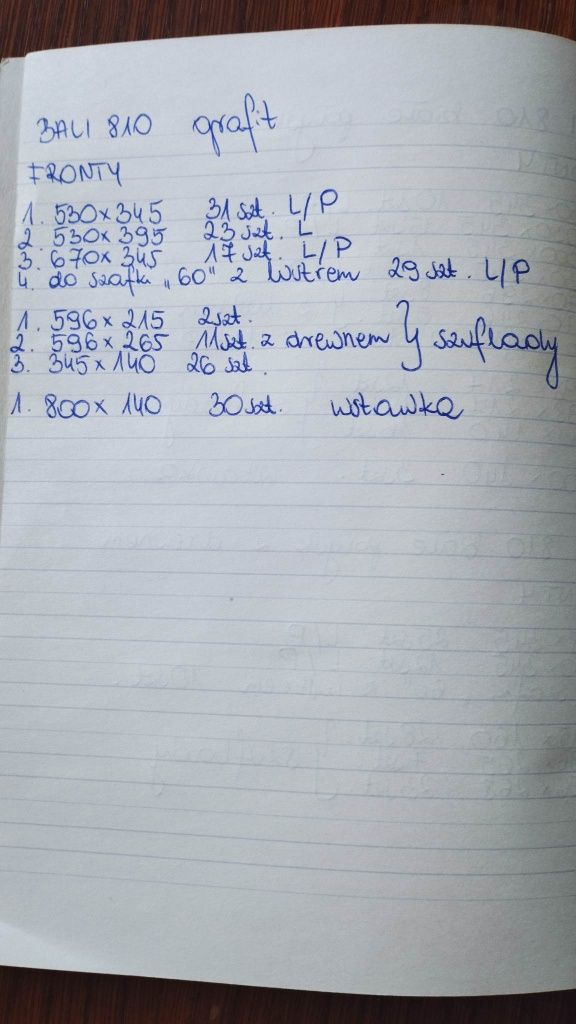 BALI 810 grafit
FRONTY
1. 530 x 345 31 szt. L/P
2. 530 x 395 23 szt. L
3. 670 x 345 17 szt. L/P
4. do szafki „60" z lustrem 29 szt. L/P
1. 596 x 215 2szt.
2. 596 x 265 11szt. z drewnem } szuflady
3. 345 x 140 26 szt.
1. 800 x 140 30 szt. wstawka